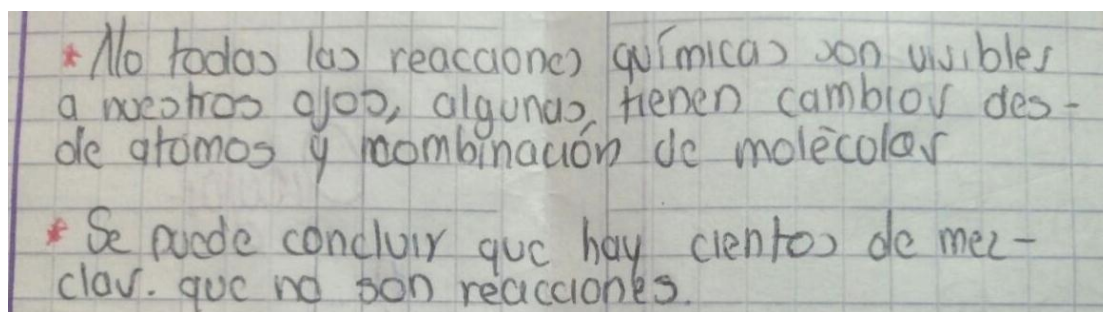 * No todas las reacciones químicas son visibles
a nuestros ojos, algunas, tienen cambios des-
de atomos y combinación de molécolas
* Se puede concluir que hay cientos de mez-
clas. que no son reacciones.